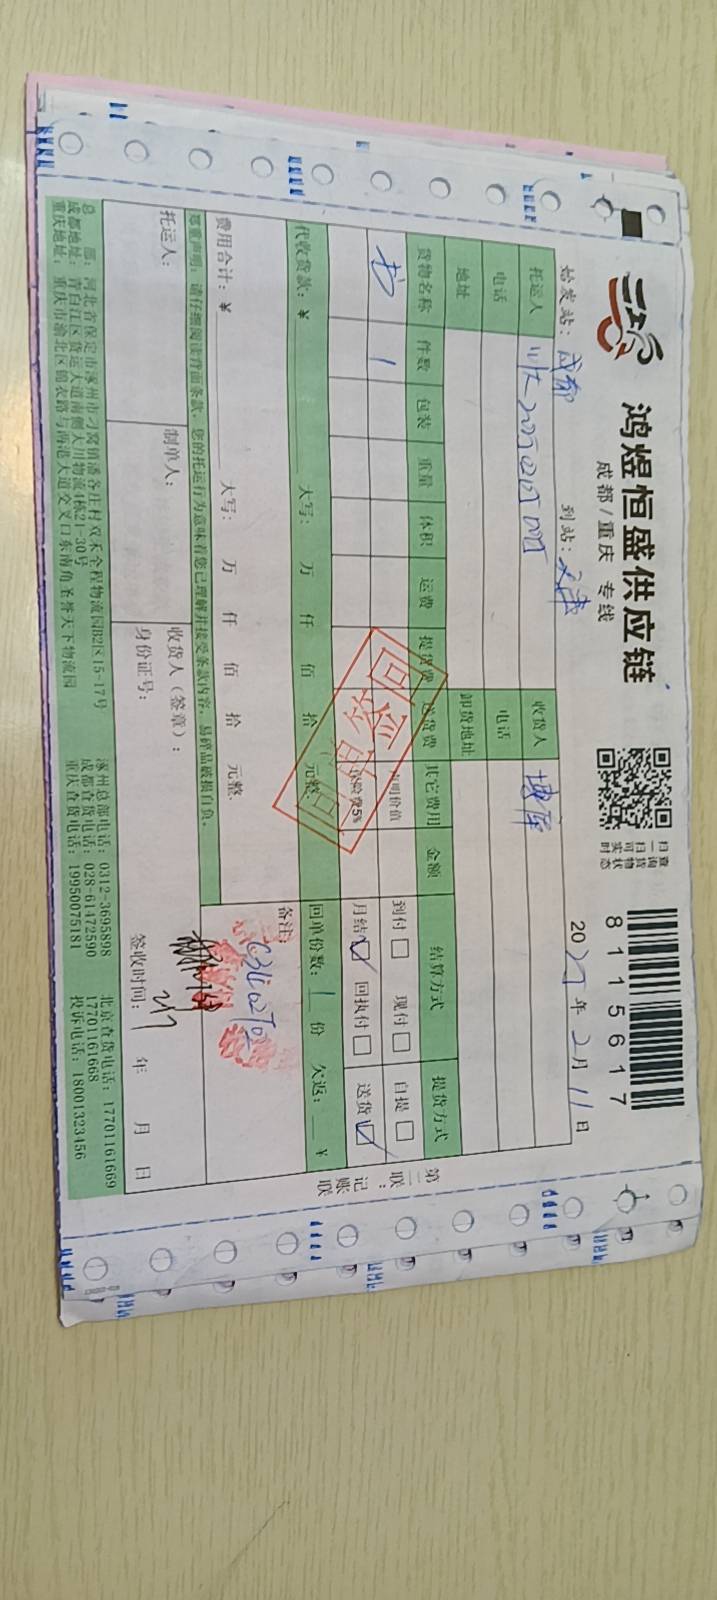 鸿煜恒盛供应链
成都/重庆 专线
扫一扫查询
可实时货物状态
8115617
始发站：成都 到站：天津 2025年2月11日
托运人 收货人
电话 电话
地址 卸货地址
货物名称 件数 包装 重量 体积 运费 提货费 送货费 其它费用 金额 结算方式 提货方式
1 声明价值 到付 现付 自提
保险费5% 月结 回执付 送货
代收货款：¥ 大写： 万 仟 佰 拾 元整. 回单份数：1 份 欠返： ¥
回单签回
费用合计：¥ 大写： 万 仟 佰 拾 元整. 备注：
郑重声明：请仔细阅读背面条款，您的托运行为意味着您已理解并接受条款内容，易碎品破损自负。
托运人： 制单人： 收货人（签章）：
身份证号： 签收时间： 年 月 日
总 部：河北省保定市涿州市刁窝镇潘各庄村双禾全程物流园B2区15-17号 涿州总部电话：0312-3695898 北京查货电话：17701161669
成都地址：青白江区货运大道南侧大川物流4栋21-30号 成都查货电话：028-61472590 17701161668
重庆地址：重庆市渝北区锦衣路与两港大道交叉口东南角圣荅天下物流园 重庆查货电话：19950075181 投诉电话：18001323456
第二联：记账联